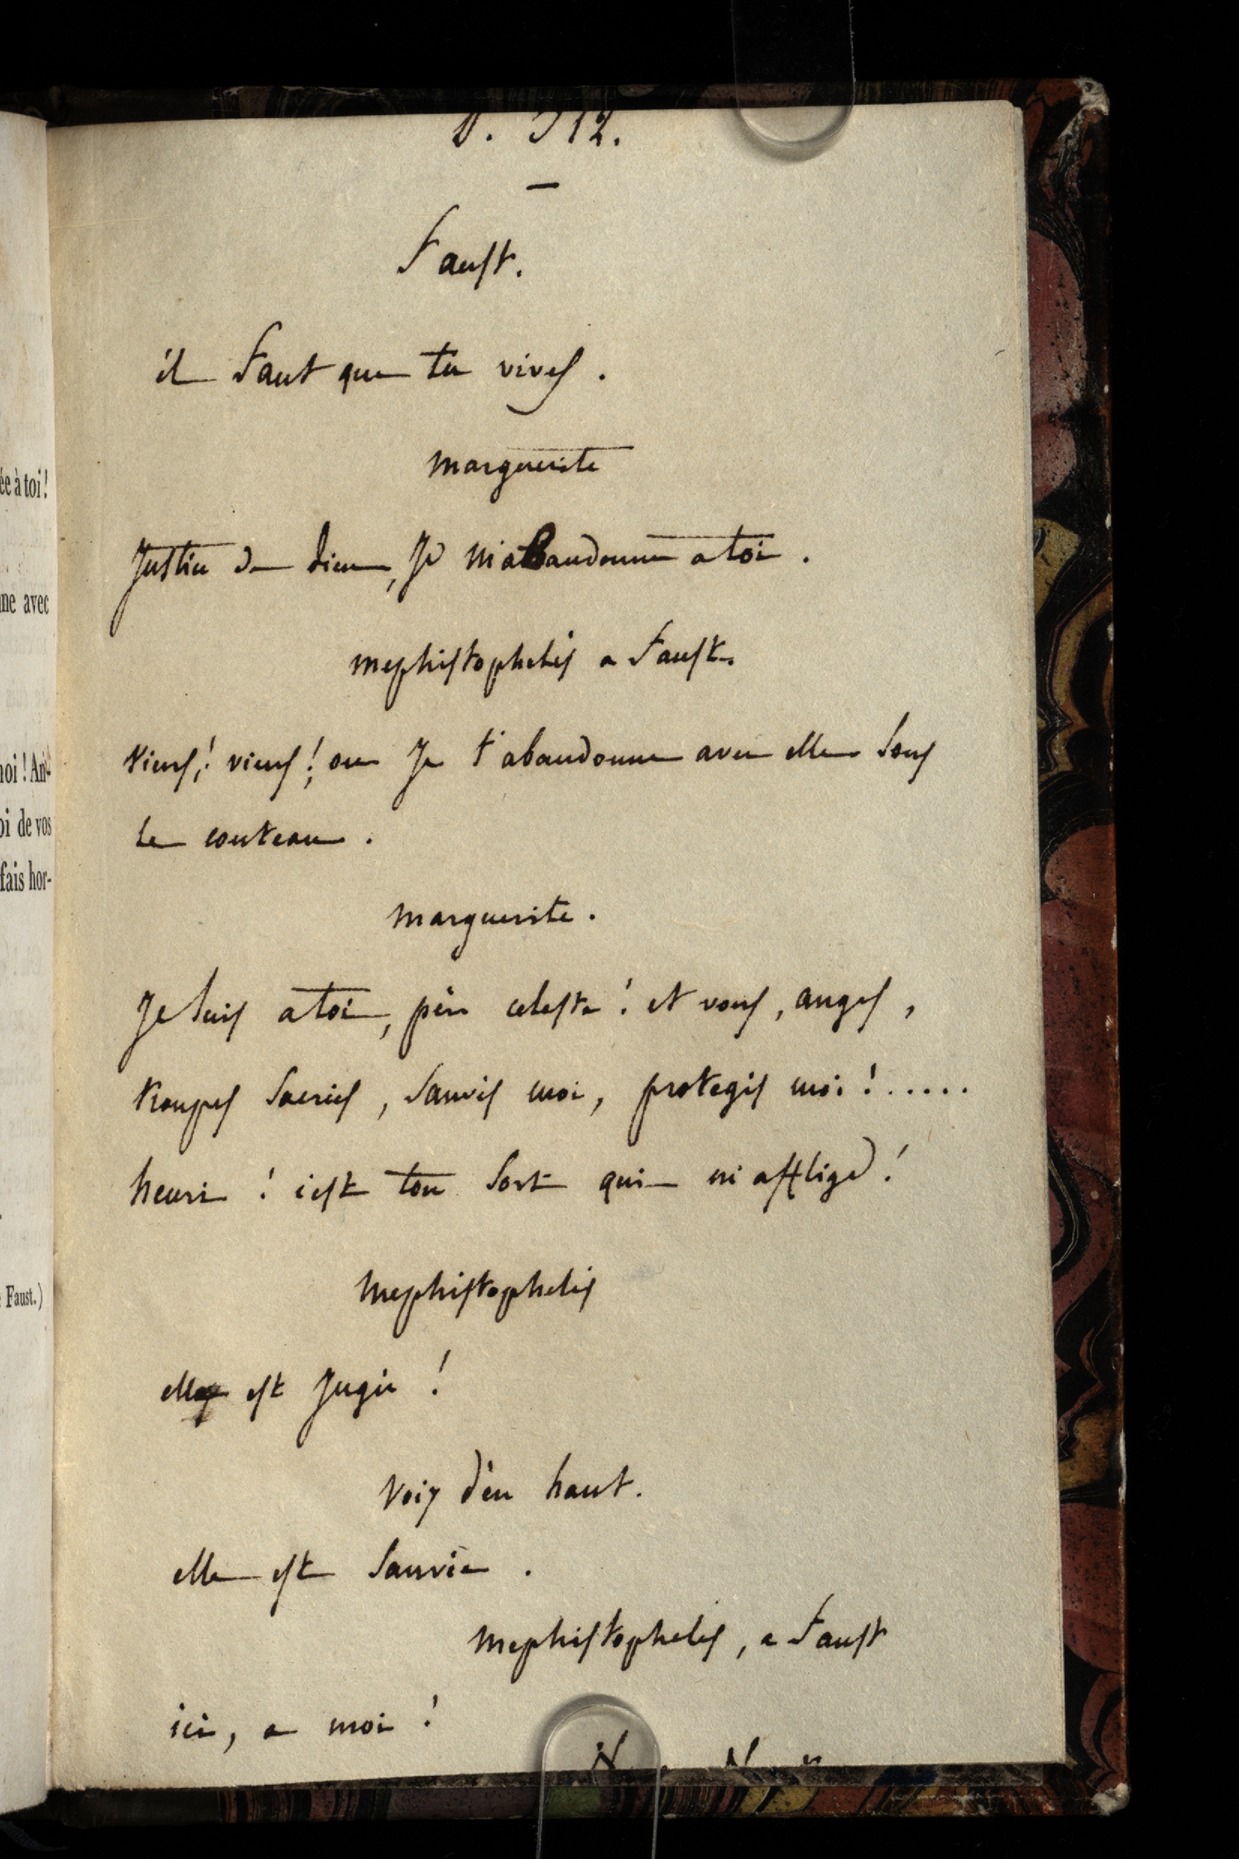 ée à toi!
ne avec
noi! An-
oi de vos
fais hor-
Faust.)
P. 312.
Faust.
il Faut que tu vives.
marguerite
Justice de dieu, Je m'aBandonne a toi.
mephistophelès a Faust.
viens! viens! ou Je t'abandonne avec elle sous
le couteau.
marguerite.
Je suis a toi, père celeste! et vous, anges,
troupes sacrées, sauvés moi, protegés moi!.....
henri! c'est ton sort qui m'afflige!
Mephistophelès
elle est Jugée!
voix d'en haut.
elle est sauvée.
Mephistophelès, a Faust
ici, a moi!